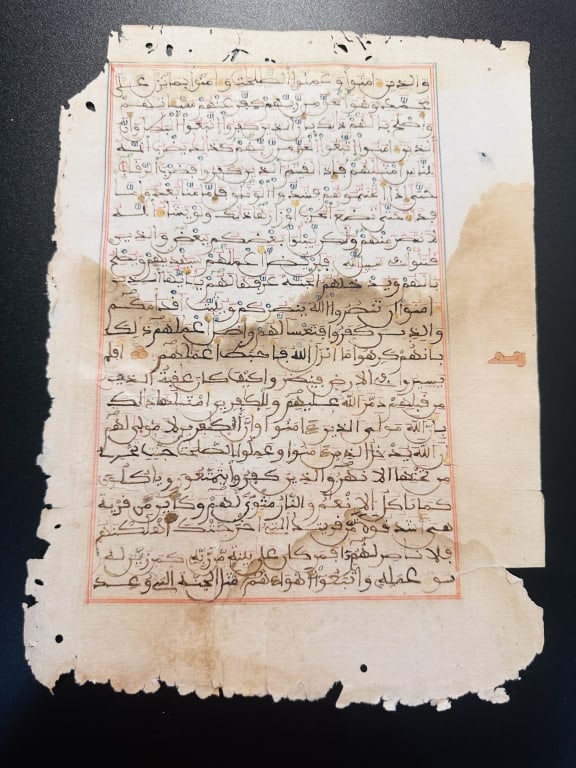 والذين ءامنوا وعملوا الصلحت وءامنوا بما نزل على
محمد وهو الحق من ربهم كفر عنهم سياتهم
واصلح بالهم ذلك بان الذين كفروا اتبعوا البطل وان
الذين ءامنوا اتبعوا الحق من ربهم كذلك يضرب الله
للناس امثلهم فاذا لقيتم الذين كفروا فضرب الرقاب
حتى اذا اثخنتموهم فشدوا الوثاق فاما منا بعد واما
فداء حتى تضع الحرب اوزارها ذلك ولو يشاء الله
لانتصر منهم ولكن ليبلوا بعضكم ببعض والذين
قتلوا في سبيل الله فلن يضل اعملهم سيهديهم ويصلح
بالهم ويدخلهم الجنة عرفها لهم يايها الذين
ءامنوا ان تنصروا الله ينصركم ويثبت اقدامكم
والذين كفروا فتعسا لهم واضل اعملهم ذلك
بانهم كرهوا ما انزل الله فاحبط اعملهم افلم
يسيروا في الارض فينظروا كيف كان عقبة الذين
من قبلهم دمر الله عليهم وللكفرين امثلها ذلك
بان الله مولى الذين ءامنوا وان الكفرين لا مولى لهم
ان الله يدخل الذين ءامنوا وعملوا الصلحت جنت تجري
من تحتها الانهر والذين كفروا يتمتعون وياكلون
كما تاكل الانعم والنار مثوى لهم وكاين من قرية
هي اشد قوة من قريتك التي اخرجتك اهلكنهم
فلا ناصر لهم افمن كان على بينة من ربه كمن زين له
سوء عمله واتبعوا اهواءهم مثل الجنة التي وعد